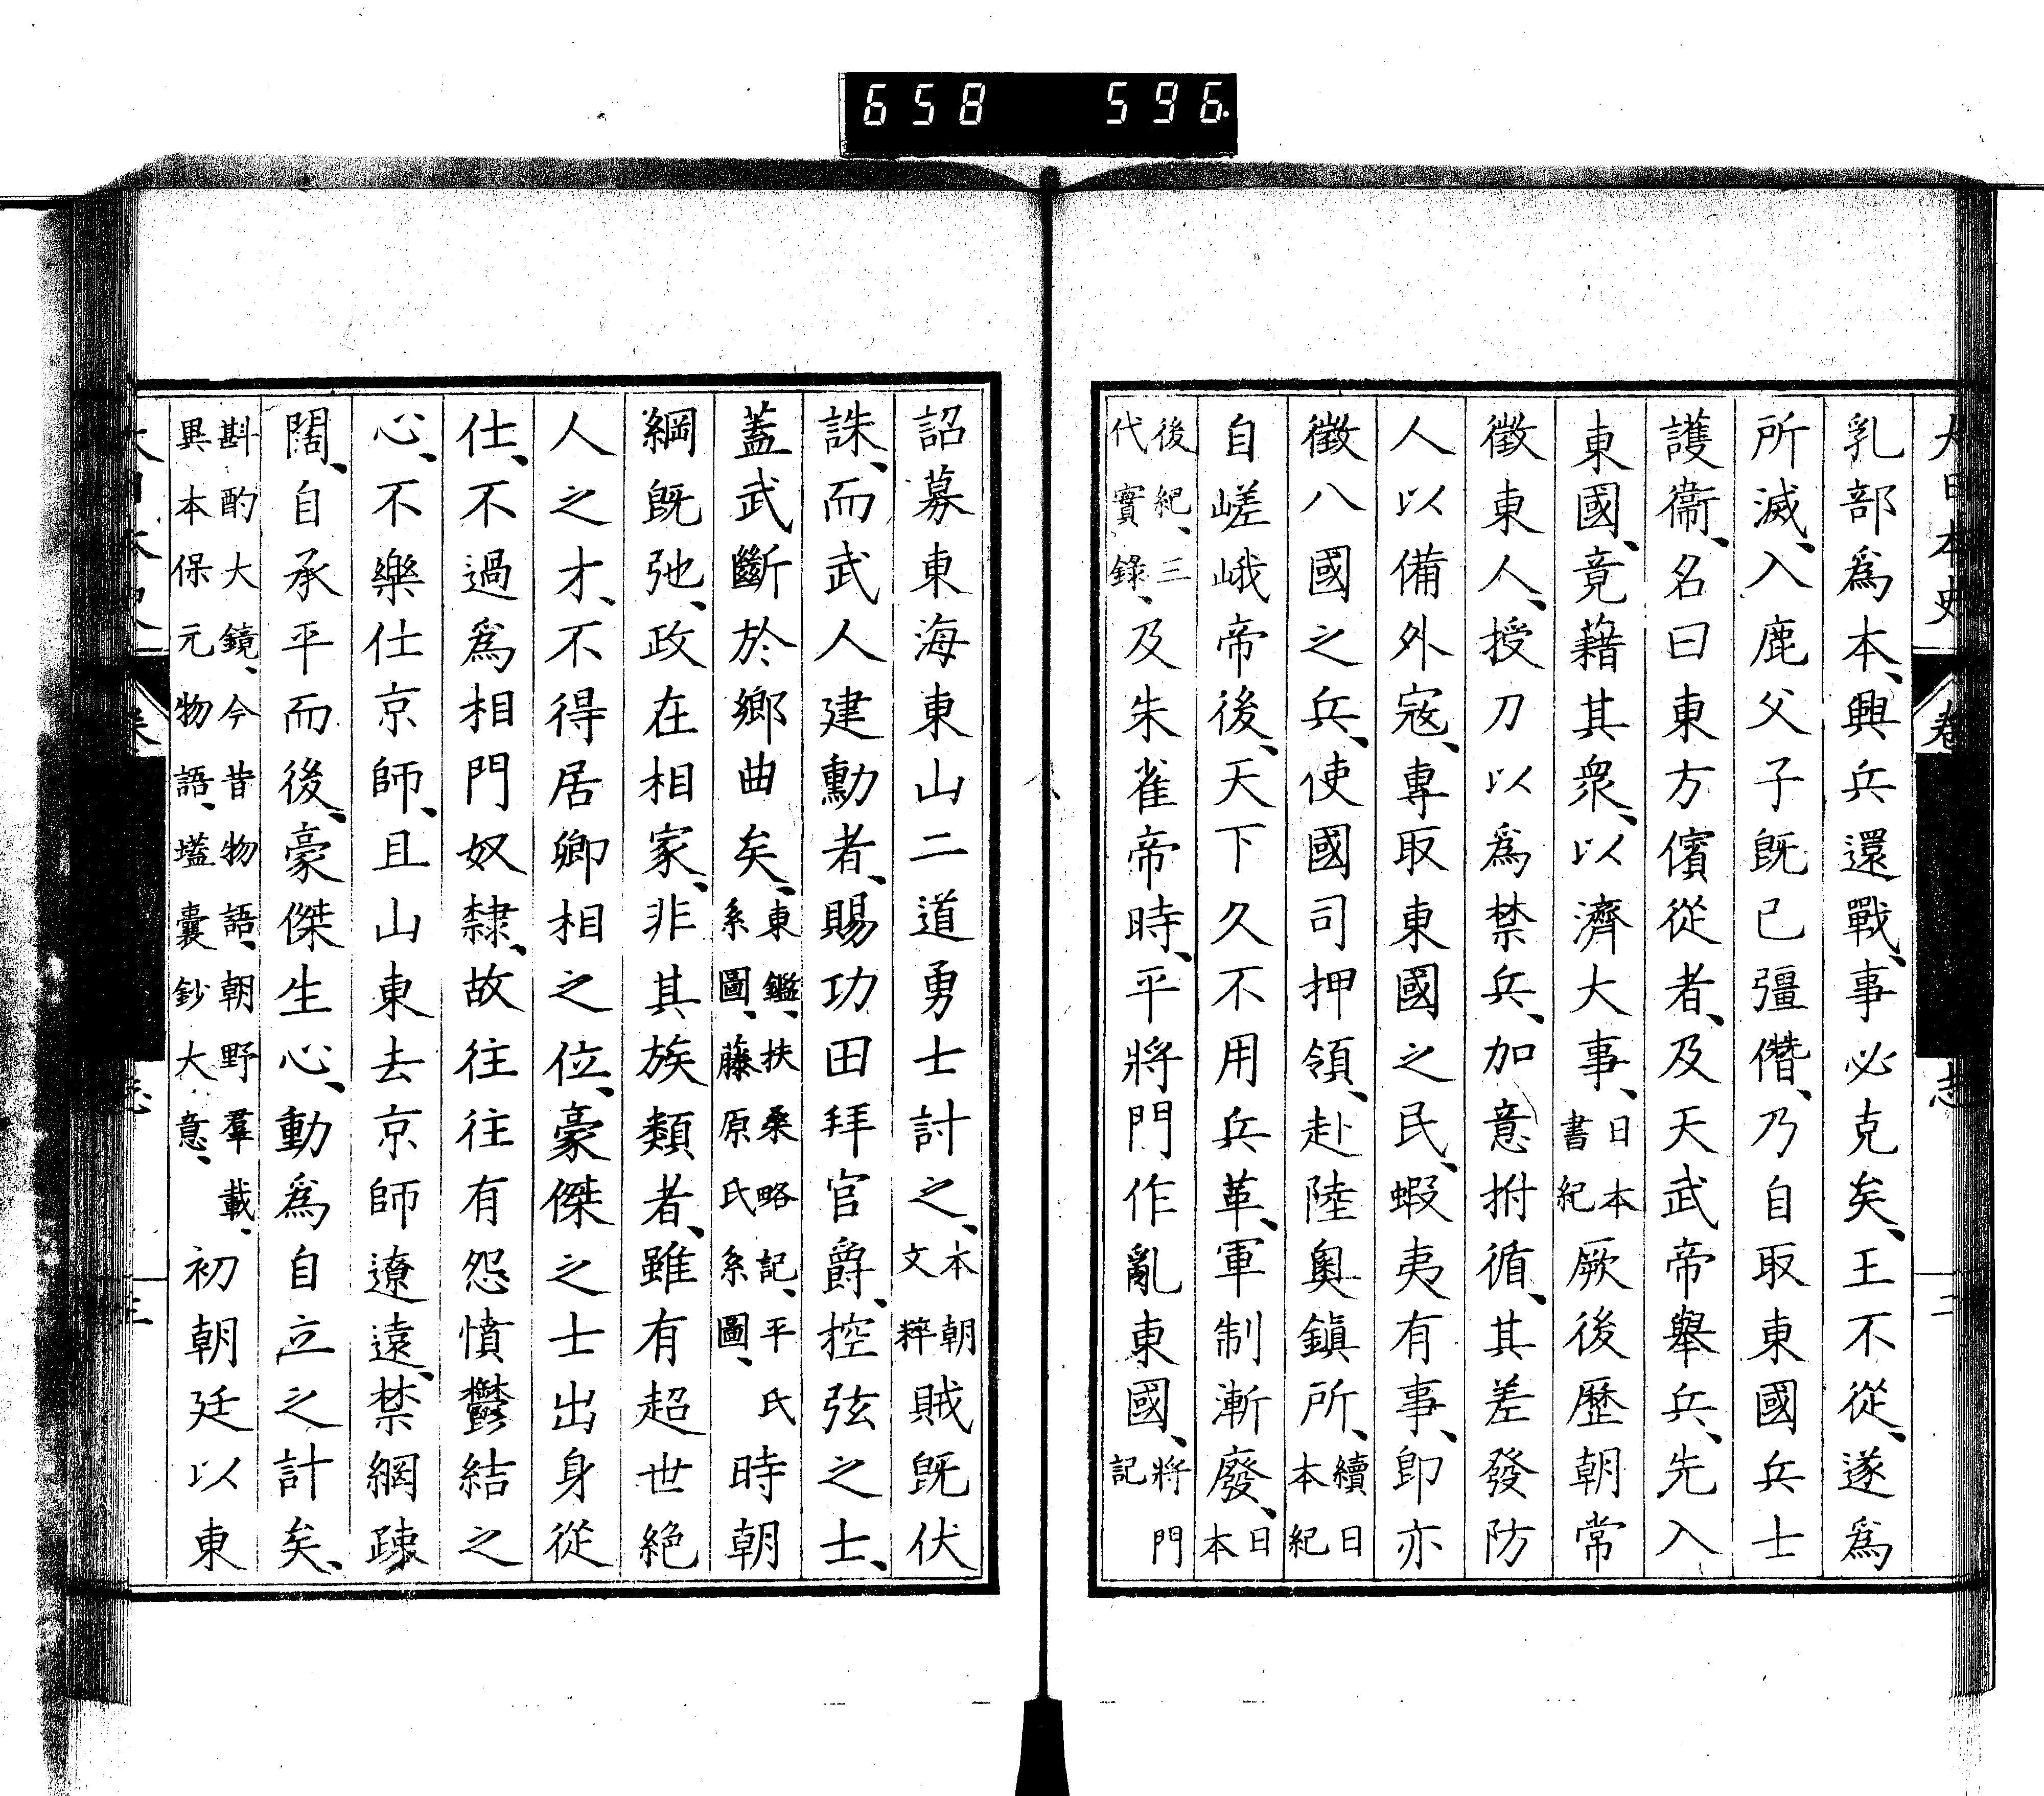 658 596
大日本史 卷 志 二
乳部爲本、興兵還戰、事必克矣、王不從、遂爲
所滅、入鹿父子既已彊僭、乃自取東國兵士
護衞、名曰東方儐從者、及天武帝舉兵、先入
東國、竟藉其衆、以濟大事、日本書紀厥後歷朝常
徵東人、授刀以爲禁兵、加意拊循、其差發防
人以備外寇、專取東國之民、蝦夷有事、卽亦
徵八國之兵、使國司押領、赴陸奧鎭所、續日本紀
自嵯峨帝後、天下久不用兵革、軍制漸廢、日本
後紀、三代實錄、及朱雀帝時、平將門作亂東國、將門記
詔募東海東山二道勇士討之、本朝文粹賊既伏
誅、而武人建勳者、賜功田拜官爵、控弦之士、
蓋武斷於鄉曲矣、東鑑、扶桑略記、平氏系圖、藤原氏系圖、時朝
綱既弛、政在相家、非其族類者、雖有超世絶
人之才、不得居卿相之位、豪傑之士出身從
仕、不過爲相門奴隸、故往往有怨憤鬱結之
心、不樂仕京師、且山東去京師遼遠、禁網疎
闊、自承平而後、豪傑生心、動爲自立之計矣、
斟酌大鏡、今昔物語、朝野羣載、異本保元物語、壒囊鈔大意、初朝廷以東